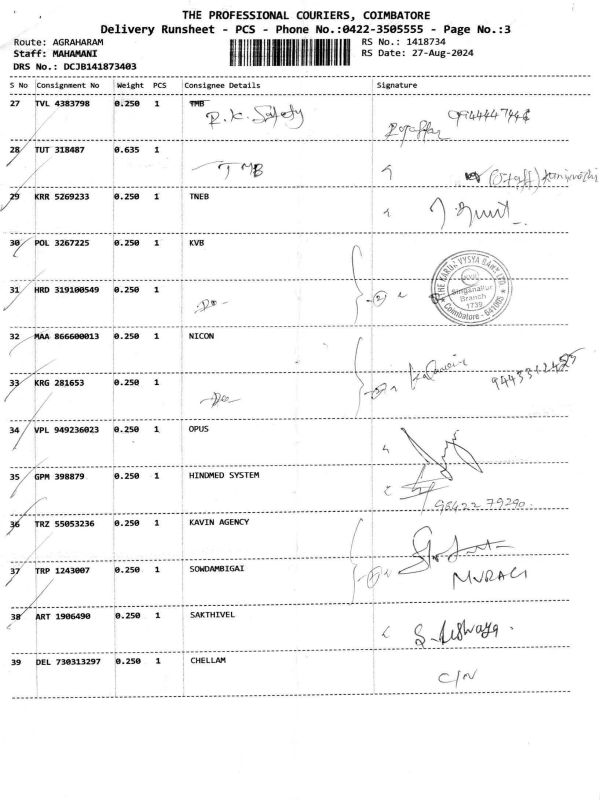 THE PROFESSIONAL COURIERS, COIMBATORE
Delivery Runsheet - PCS - Phone No.:0422-3505555 - Page No.:3
Route: AGRAHARAM RS No.: 1418734
Staff: MAHAMANI RS Date: 27-Aug-2024
DRS No.: DCJB141873403
S No Consignment No Weight PCS Consignee Details Signature
27 TVL 4383798 0.250 1 TMB
R.K. Safety
28 TUT 318487 0.635 1
TMB (Staff)
29 KRR 5269233 0.250 1 TNEB
30 POL 3267225 0.250 1 KVB
THE KARUR VYSYA BANK LTD.
Singanallur
Branch
1739
Coimbatore - 641005
31 HRD 319100549 0.250 1
-Do- 2
32 MAA 866600013 0.250 1 NICON
33 KRG 281653 0.250 1
-Do-
34 VPL 949236023 0.250 1 OPUS
35 GPM 398879 0.250 1 HINDMED SYSTEM
98422 79290
36 TRZ 55053236 0.250 1 KAVIN AGENCY
37 TRP 1243007 0.250 1 SOWDAMBIGAI
MURALI
38 ART 1906490 0.250 1 SAKTHIVEL
S. Aishwarya.
39 DEL 730313297 0.250 1 CHELLAM
C/N